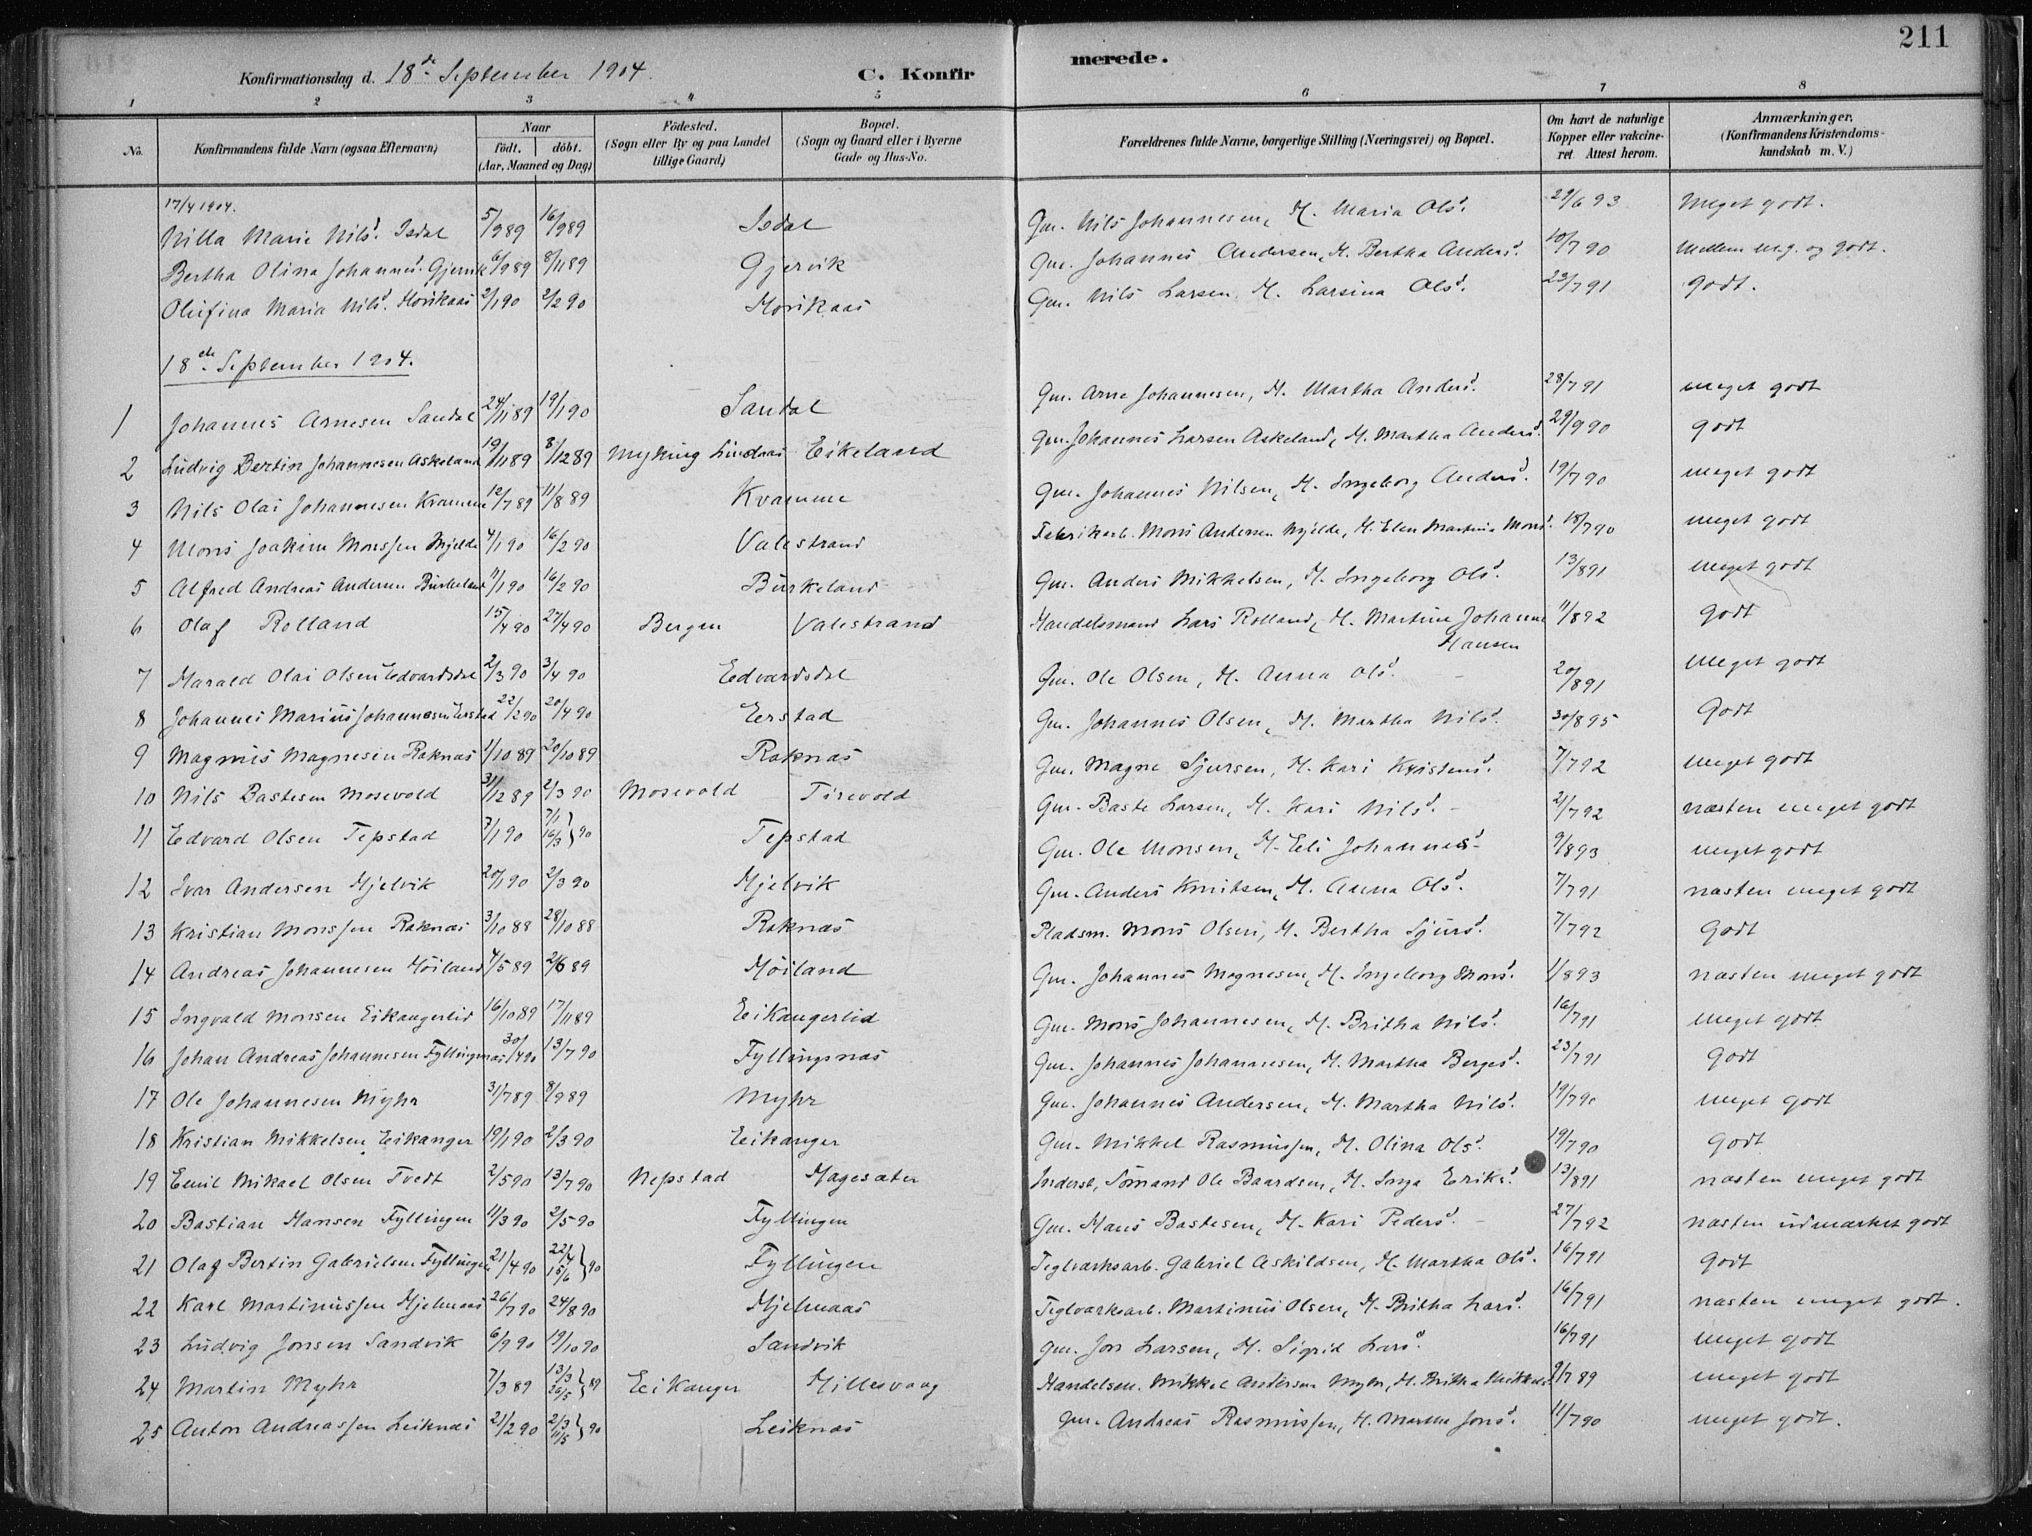 211
Konfirmationsdag d. 18de September 1904. C. Konfirmerede.
1 2 3 4 5 6 7 8
No. Konfirmandens fulde Navn (ogsaa Efternavn) Naar födt. döbt. (Aar, Maaned og Dag) Födested. (Sogn eller By og paa Landet tillige Gaard) Bopæl. (Sogn og Gaard eller i Byerne Gade og Hus-No. Forældrenes fulde Navne, borgerlige Stilling (Næringsvei) og Bopæl. Om havt de naturlige Kopper eller vakcineret Attest herom. Anmærkninger. (Konfirmandens Kristendomskundskab m. V.)
17/4 1904.
Nilla Marie Nilsd. Isdal 5/9 89 16/9 89 Isdal Gm. Nils Johannesen, H. Maria Olsd. 29/6 93 Meget godt.
Bertha Olina Johannesd. Gjervik 6/9 89 8/11 89 Gjervik Gm. Johannes Andersen, H. Bertha Andersd. 10/7 90 Mellem m.g. og godt.
Olufina Maria Nilsd. Horikaas 2/1 90 2/2 90 Horikaas Gm. Nils Larsen, H. Larsina Olsd. 23/7 91 godt.
18de September 1904.
1 Johannes Arnesen Sandal 24/11 89 19/1 90 Sandal Gm. Arne Johannesen, H. Martha Andersd. 28/7 91 meget godt
2 Ludvig Bertin Johannesen Askeland 19/11 89 8/12 89 Myking Lindaas Eikeland Gm. Johannes Larsen Askeland, H. Martha Andersd. 29/9 90 godt
3 Nils Olai Johannesen Kvamme 12/7 89 11/8 89 Kvamme Gm. Johannes Nilsen, H. Ingeborg Andersd. 19/7 90 meget godt
4 Mons Joakim Monssen Mjelde 4/1 90 16/2 90 Valestrand Fabrikarb. Mons Andersen Mjelde, H. Elen Martina Monsd. 18/7 90 meget godt
5 Alfred Andreas Andersen Burkeland 11/1 90 16/2 90 Burkeland Gm. Anders Mikkelsen, H. Ingeborg Olsd. 13/8 91 meget godt
6 Olaf Rolland 15/4 90 27/4 90 Bergen Valestrand Handelsmand Lars Rolland, H. Martine Johanne Hansen 11/8 92 godt
7 Harald Olai Olsen Edvardsdal 2/3 90 3/4 90 Edvardsdal Gm. Ole Olsen, H. Anna Olsd. 20/8 91 meget godt
8 Johannes Marius Johannesen Eerstad 22/2 90 20/4 90 Eerstad Gm. Johannes Olsen, H. Martha Nilsd. 30/8 95 Godt
9 Magnus Magnesen Raknæs 1/10 89 20/10 89 Raknæs Gm. Magne Sjursen, H. Kari Kristensd. 7/7 92 meget godt
10 Nils Bastesen Mosevold 31/12 89 2/3 90 Mosevold Tirevold Gm. Baste Larsen, H. Kari Nilsd. 21/7 92 næsten meget godt
11 Edvard Olsen Tepstad 7/1 90 7/1 16/3 } 90 Tepstad Gm. Ole Monsen, H. Eli Johannesd. 9/8 93 meget godt
12 Ivar Andersen Hjelvik 20/1 90 2/3 90 Hjelvik Gm. Anders Knutsen, H. Anna Olsd. 7/7 91 næsten meget godt
13 Kristian Monssen Raknæs 3/10 88 28/10 88 Raknæs Pladsm. Mons Olsen, H. Bertha Sjursd. 7/7 92 Godt
14 Andreas Johannesen Höiland 4/5 89 2/6 89 Höiland Gm. Johannes Magnesen, H. Ingeborg Monsd. 1/8 93 næsten meget godt
15 Ingvald Monsen Eikangerlid 16/10 89 17/11 89 Eikangerlid Gm. Mons Johannesen, H. Britha Nilsd. 16/7 91 meget godt
16 Johan Andreas Johannesen Fyllingsnæs 30/4 90 13/7 90 Fyllingsnæs Gm. Johannes Johannesen, H. Martha Bergesd. 23/7 91 godt
17 Ole Johannesen Myhr 31/7 89 8/9 89 Myhr Gm. Johannes Andersen, H. Martha Nilsd. 19/7 90 meget godt
18 Kristian Mikkelsen Eikanger 19/1 90 2/3 90 Eikanger Gm. Mikkel Rasmussen, H. Olina Olsd. 19/7 90 godt
19 Emil Mikael Olsen Tvedt 2/5 90 13/7 90 Nepstad Hagesæter Inderst, Sömand Ole Baardsen, H. Inga Eriksd. 13/8 91 næsten meget godt
20 Bastian Hansen Fyllingen 11/3 90 2/5 90 Fyllingen Gm. Hans Bastesen, H. Kari Pedersd. 27/7 92 næsten udmærket godt
21 Olaf Bertin Gabrielsen Fyllingen 21/4 90 22/4 15/6 } 90 Fyllingen Teglværksarb. Gabriel Askildsen, H. Martha Olsd. 16/7 91 godt
22 Karl Martinussen Hjelmaas 26/7 90 24/8 90 Hjelmaas Teglværksarb. Martinus Olsen, H. Britha Larsd. 16/7 91 næsten meget godt.
23 Ludvig Jonsen Sandvik 6/9 90 19/10 90 Sandvik Gm. Jon Larsen, H. Sigrid Larsd. 16/7 91 meget godt
24 Martin Myhr 7/3 89 13/3 26/5 } 89 Eikanger Hillesvaag Handelsm. Mikkel Andersen Myhr, H. Britha Mikkelsd. 9/7 89 meget godt
25 Anton Andreassen Leiknæs 21/2 90 2/3 11/5 } 90 Leiknæs Gm. Andreas Rasmussen, H. Martha Jonsd. 11/7 90 meget godt.